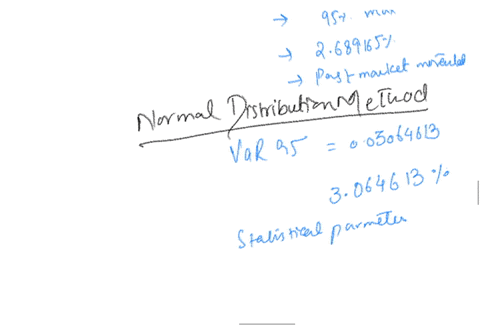 → 95% max
→ 2.689165%
→ Past market
Normal Distribution Method
VaR 95 = 0.03064613
3.064613 %
Statistical parmeter